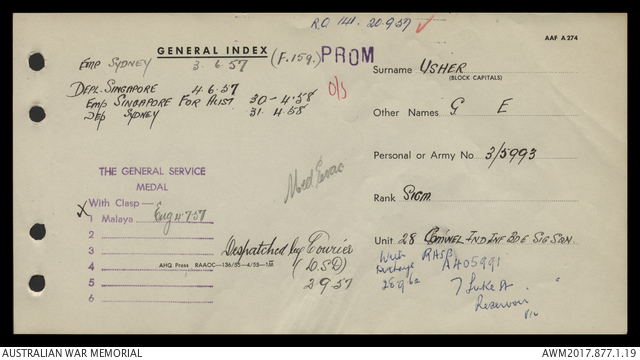 R.O. 141. 20.9.57
AAF A 274
GENERAL INDEX (F.159.) PROM
Emp SYDNEY 3.6.57
DEPL. SINGAPORE 4.6.57
Emp SINGAPORE FOR AUST 30-4.58
DEP SYDNEY 31.4.58
O/S
Surname USHER
(BLOCK CAPITALS)
Other Names G E
Personal or Army No. 3/5993
Rank SIGM.
Unit 28 COMWEL IND INF BDE SIG SQN.
Med Evac
THE GENERAL SERVICE
MEDAL
With Clasp —
X 1 Malaya Elig 4.7.57
2
3
4
5
6
Despatched by Courier
(D.S.D)
2.9.57
AHQ Press RAAOC—136/55—4/55—1M
With RASB
26.9.62
A405991
7 Luke St
Reservoir
Vic
AUSTRALIAN WAR MEMORIAL
AWM2017.877.1.19